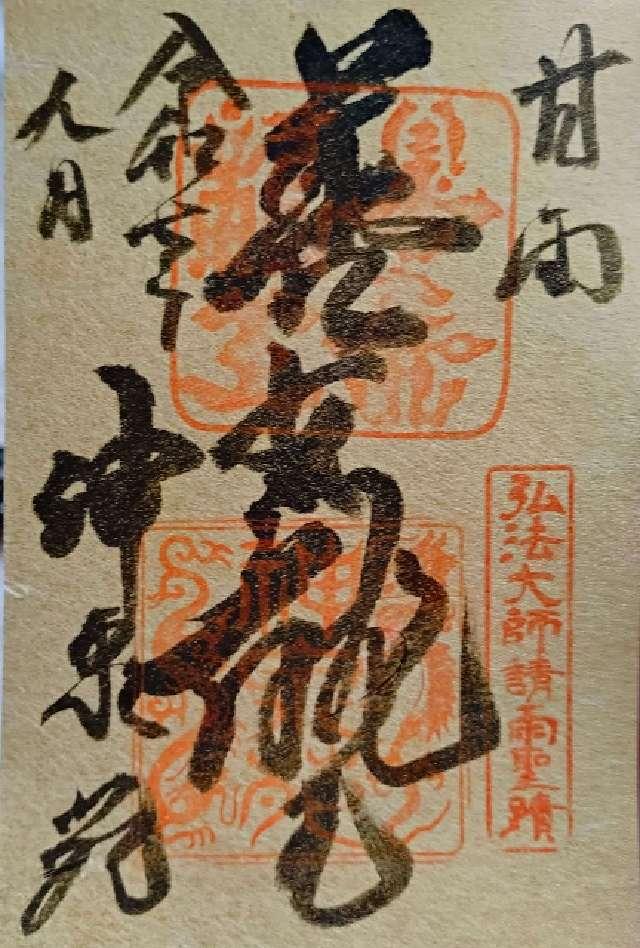 甘雨
弘法大師請雨聖蹟
善女龍王
令和六年
九月
神泉苑